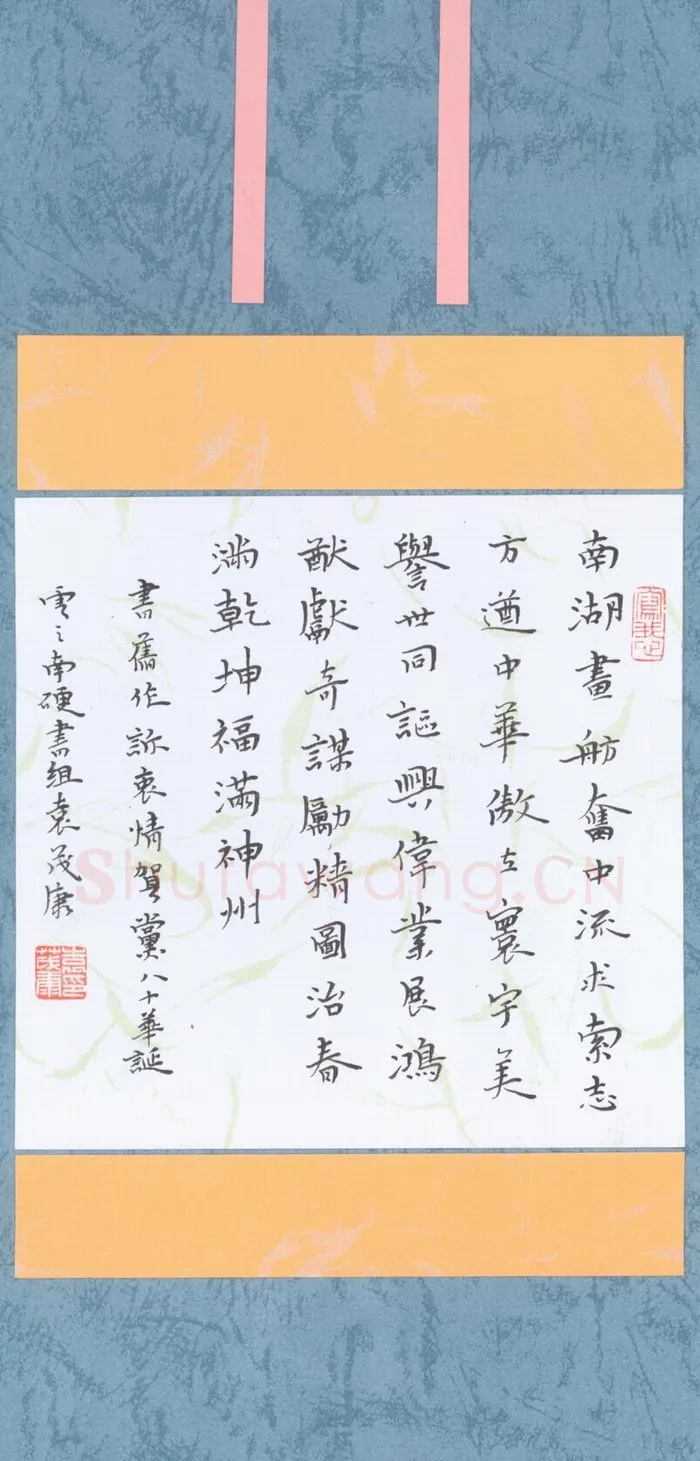 寫我心
南湖畫舫奮中流求索志
方遒中華傲立寰宇美
譽世同謳興偉業展鴻
猷獻奇謀勵精圖治春
滿乾坤福滿神州
書舊作訴衷情賀黨八十華誕
雲之南硬書組袁茂康
袁印茂康
Shufawang.CN